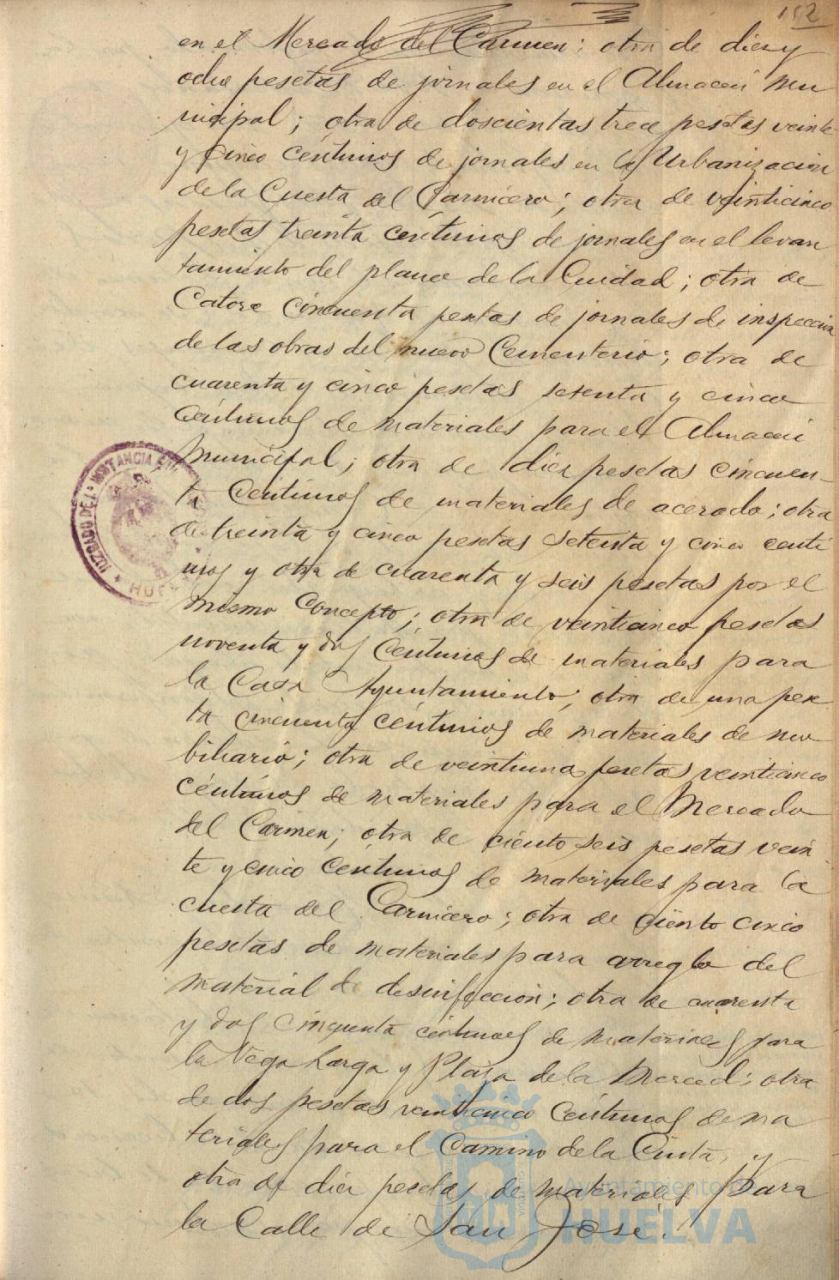 152
en el Mercado del Carmen; otra de diez y
ocho pesetas de jornales en el Almacen mu
nicipal; otra de doscientas trece pesetas veinte
y cinco céntimos de jornales en la Urbanización
de la Cuesta del Carnicero; otra de veinticinco
pesetas treinta céntimos de jornales en el levan
tamiento del plano de la Ciudad; otra de
Catorce cincuenta pesetas de jornales de inspección
de las obras del nuevo Cementerio; otra de
cuarenta y cinco pesetas setenta y cinco
céntimos de materiales para el Almacen
Municipal; otra de diez pesetas cincuen-
ta Céntimos de materiales de acerado; otra
de treinta y cinco pesetas setenta y cinco cénti
mos y otra de cuarenta y seis pesetas por el
mismo Concepto; otra de veinticinco pesetas
noventa y dos Céntimos de materiales para
la Casa Ayuntamiento; otra de una pese
ta cincuenta céntimos de materiales de mo
biliario; otra de veintiuna pesetas veinticinco
céntimos de materiales para el Mercado
del Carmen; otra de ciento seis pesetas vein
te y cinco céntimos de materiales para la
cuesta del Carnicero; otra de ciento cinco
pesetas de materiales para arreglo del
material de desinfección; otra de cuarenta
y dos cinquenta céntimos de materiales para
la Vega Larga y Plaza de la Merced; otra
de dos pesetas veinticinco Céntimos de ma
teriales para el Camino de la Cinta, y
otra de diez pesetas de materiales para
la Calle de San José.
JUZGADO DE 1ª INSTANCIA
HU
Ayuntamiento
HUELVA